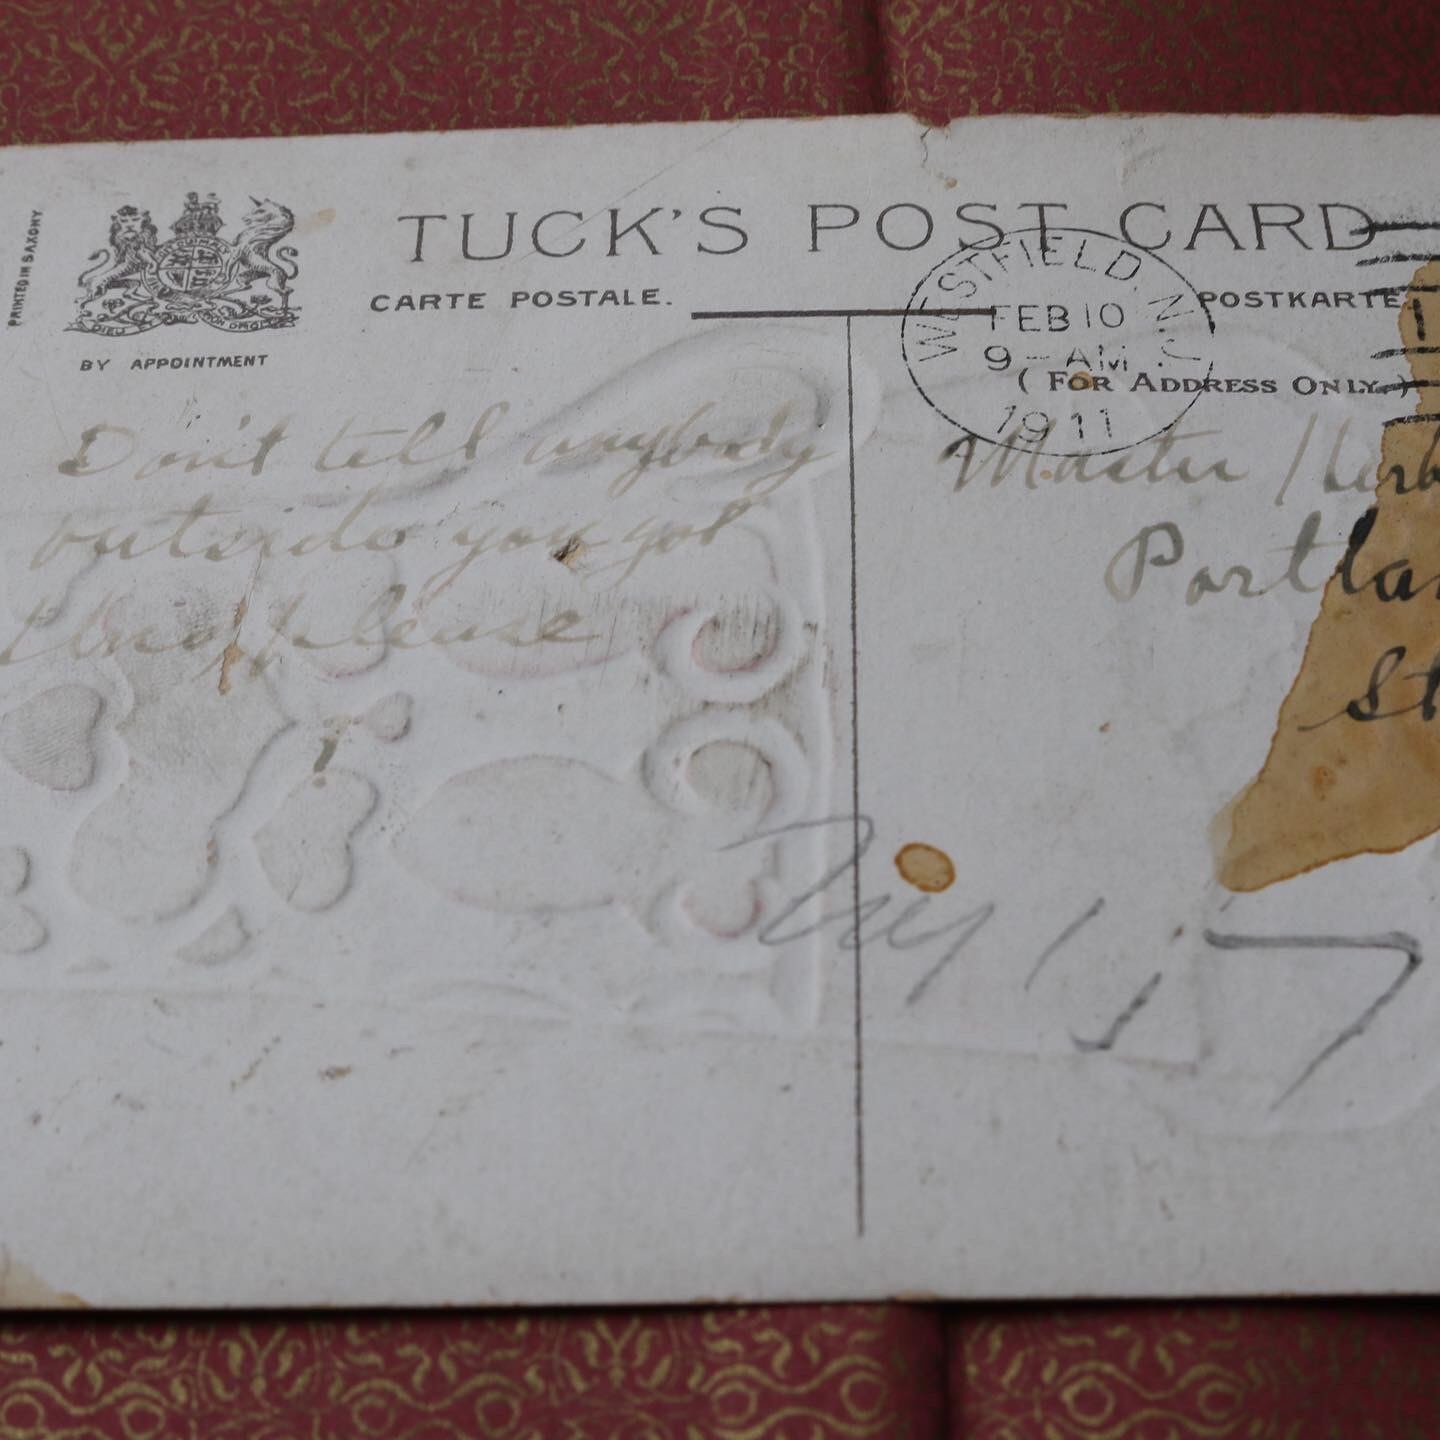 PRINTED IN SAXONY
DIEU ET MON DROIT
BY APPOINTMENT
TUCK'S POST CARD
CARTE POSTALE.
POSTKARTE
(FOR ADDRESS ONLY.)
WESTFIELD, N.J.
FEB 10
9-AM
1911
Don't tell anybody
outside you got
this please
Master Herb
Portlan
St